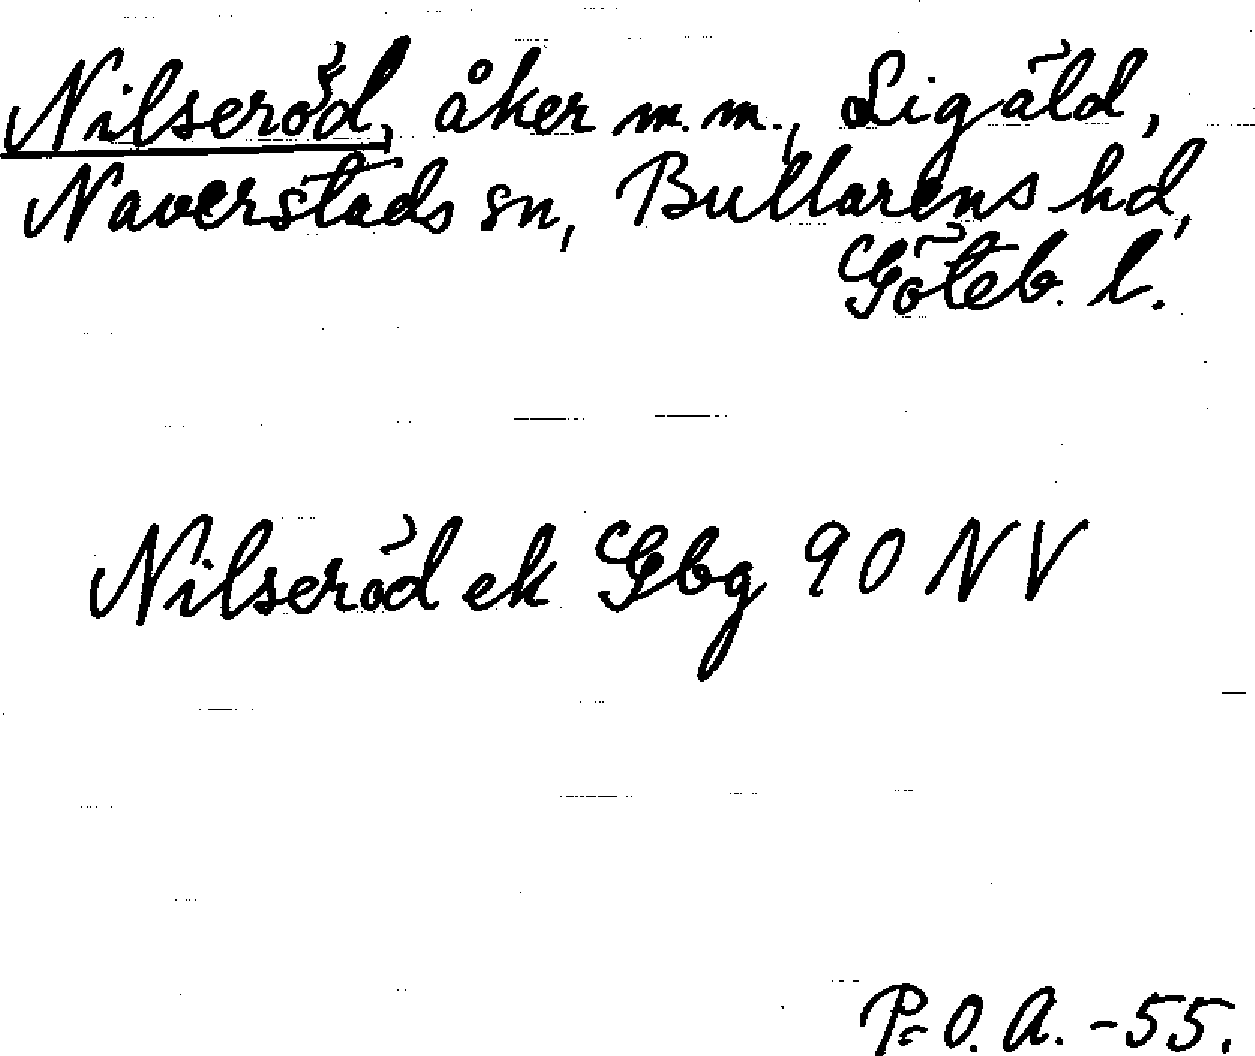 Nilseröd, åker m.m., Ligäld,
Naverstads sn, Bullarens hd,
Göteb. l.
Nilseröd ek Gbg 90 NV
P=O. A. -55.